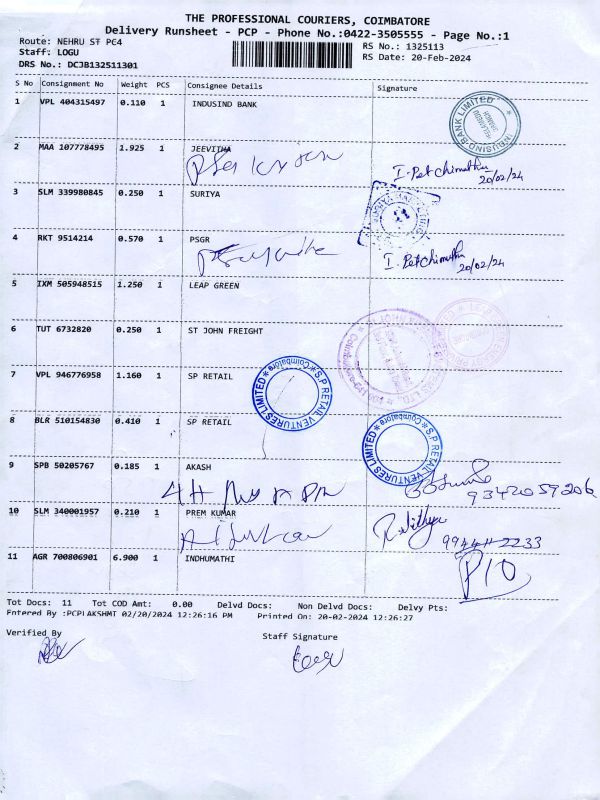 THE PROFESSIONAL COURIERS, COIMBATORE
Delivery Runsheet - PCP - Phone No.:0422-3505555 - Page No.:1
Route: NEHRU ST PC4
RS No.: 1325113
Staff: LOGU
RS Date: 20-Feb-2024
DRS No.: DCJB132511301
S No Consignment No Weight PCS Consignee Details Signature
1 VPL 404315497 0.110 1 INDUSIND BANK
INDUSIND BANK LIMITED
2 MAA 107778495 1.925 1 JEEVITHA
I. Petchimuthu
20/02/24
3 SLM 339980845 0.250 1 SURIYA
4 RKT 9514214 0.570 1 PSGR
I. Petchimuthu
20/02/24
5 IXM 505948515 1.250 1 LEAP GREEN
6 TUT 6732820 0.250 1 ST JOHN FREIGHT
7 VPL 946776958 1.160 1 SP RETAIL
S.P RETAIL VENTURES LIMITED * Coimbatore *
8 BLR 510154830 0.410 1 SP RETAIL
S.P RETAIL VENTURES LIMITED * Coimbatore *
9 SPB 50205767 0.185 1 AKASH
9342059206
10 SLM 340001957 0.210 1 PREM KUMAR
11 AGR 700806901 6.900 1 INDHUMATHI
Tot Docs: 11 Tot COD Amt: 0.00 Delvd Docs: Non Delvd Docs: Delvy Pts:
Entered By :PCPLAKSHMI 02/20/2024 12:26:16 PM Printed On: 20-02-2024 12:26:27
Verified By
Staff Signature